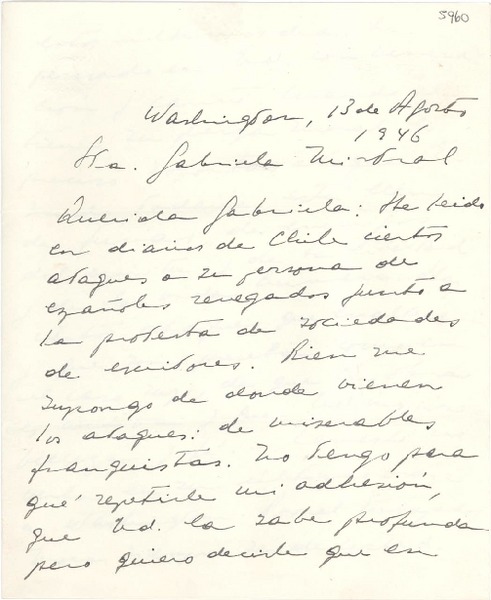 5960
Washington, 13 de Agosto
1946
Sta. Gabriela Mistral
Querida Gabriela: He leido
en diarios de Chile ciertos
ataques a su persona de
españoles renegados junto a
la protesta de sociedades
de escritores. Bien me
supongo de donde vienen
los ataques: de miserables
franquistas. No tengo para
qué repetirle mi adhesión,
que Ud. la sabe profunda
pero quiero decirle que en